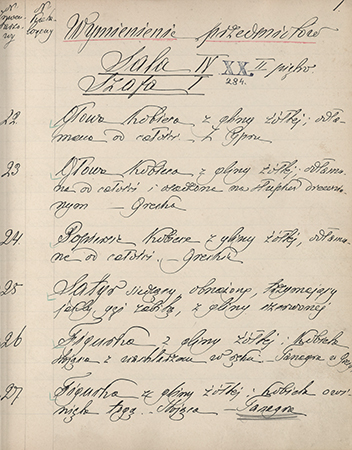 Wymienienie przedmiotów
Sala IV XX. II piętro
Szafa I 284.
22 Głowa kobieca z gliny żółtej; odła-
mana od całości – z Cypru
23 Głowa kobieca z gliny żółtej; odłama-
na od całości i osadzona na słupku drewnia-
nym – Grecka
24 Popiersie kobiece z gliny żółtej, odłama-
ne od całości. – Greckie
25 Satyr siedzący, obnażony, trzymający
z gliny czerwonej
26 Figurka z gliny żółtej; kobieta
stojąca z wachlarzem w ręku. Tanagra
27 Figurka z gliny żółtej; kobieta owi-
nięta togą. – Stojąca – Tanagra